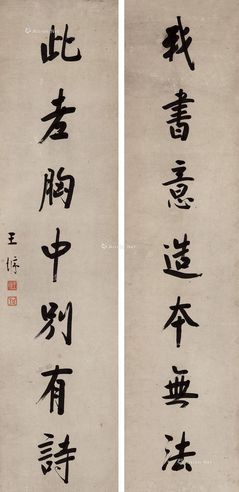 我書意造本無法
此老胸中別有詩
王